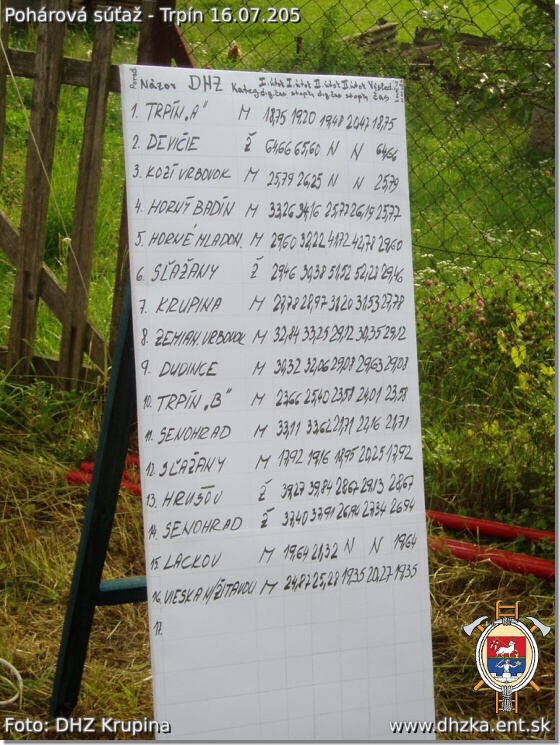 Pohárová súťaž - Trpín 16.07.205
Názov DHZ Kateg. I.útok I.útok II.útok II.útok Výsled.
dig.čas stopk. dig.čas stopk. čas
1. TRPÍN „A" M 18,75 19,20 19,48 20,47 18,75
2. DEVIČIE Ž 64,66 65,60 N N 64,66
3. KOZÍ VRBOVOK M 25,79 26,25 N N 25,79
4. HORNÝ BADÍN M 33,26 34,16 25,77 26,19 25,77
5. HORNÉ MLADON. M 29,60 32,22 41,72 42,78 29,60
6. SĽAŽANY Ž 29,46 30,38 51,52 52,28 29,46
7. KRUPINA M 27,78 28,97 31,20 31,53 27,78
8. ZEMIAN. VRBOVOK M 32,84 33,25 29,12 30,35 29,12
9. DUDINCE M 31,32 32,06 29,08 29,63 29,08
10. TRPÍN „B" M 23,66 25,40 23,58 24,01 23,58
11. SENOHRAD M 33,11 33,62 21,71 22,16 21,71
12. SĽAŽANY M 17,92 19,16 18,95 20,25 17,92
13. HRUŠOV Ž 39,27 39,84 28,67 29,13 28,67
14. SENOHRAD Ž 37,40 37,91 26,94 27,34 26,94
15. LACKOV M 19,64 21,32 N N 19,64
16. VIESKA N/ŽITAVOU M 24,87 25,28 19,35 20,27 19,35
17.
Foto: DHZ Krupina
www.dhzka.ent.sk